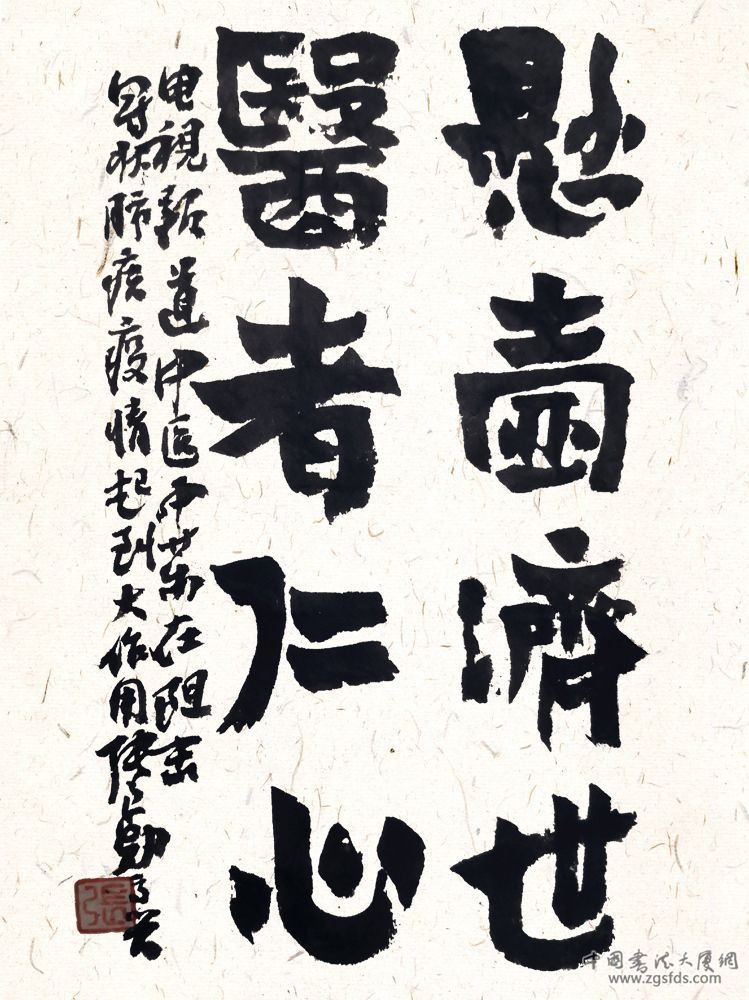 懸壺濟世
醫者仁心
电視報道中医中药在阻击
冠状肺疾疫情起到大作用張
張
中国书法大厦網
www.zgsfds.com